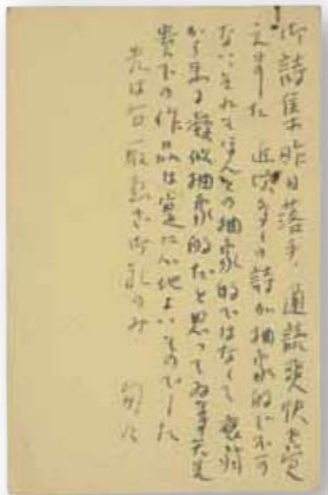 御詩集昨日落手、通読爽快を覚
えました 近頃多くの詩が抽象的でいけ
ない、それもほんとの抽象的ではなくて 衰弱
から来る擬似抽象的だと思ってゐます 先
貴下の作品は寔に心地よいものでした
先は右一般 御礼のみ 匆々